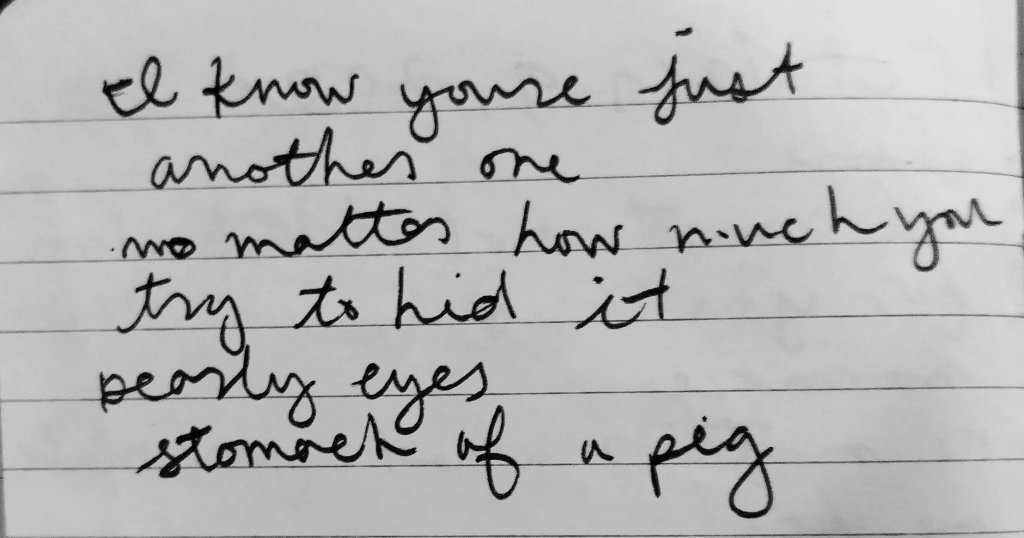 I know youre just
another one
no matter how much you
try to hid it
pearly eyes
stomach of a pig